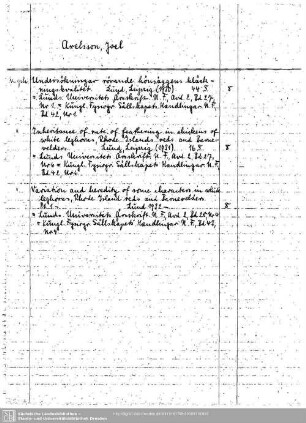 Axelsson, Joel
Undersökningar rörande hönsäggens kläck-
ningskvalitet. Lund, Leipzig (1930) 44 S. 8
= Lunds Universitets Årsskrift. N.F., Avd 2, Bd 27,
Nr 1. = Kungl. Fysiogr. Sällskapets Handlingar N.F.
Bd 42, Nr 1.
Inheritance of rate of feathering in chickens of
white leghorns, Rhode Islands reds and barne-
velders. Lund, Leipzig (1931). 16 S. 8
= Lunds Universitets Årsskrift. N.F., Avd 2, Bd 27,
= Kungl. Fysiogr. Sällskapets Handlingar N.F.
Bd 42,
Variation and heredity of some characters in white
leghorns, Rhode Island reds and barnevelders.
Lund 1932 8
= Lunds Universitets Årsskrift. N.F., Avd 2,
= Kungl. Fysiogr. Sällskapets Handlingar N.F., Bd 43,